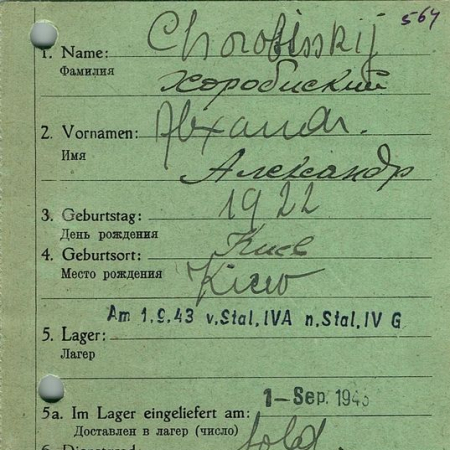 564
1. Name: Chorobisskij
Фамилия
Хоробиский
2. Vornamen: Alexandr.
Имя
Александр
3. Geburtstag: 1922
День рождения
Киев
4. Geburtsort: Kiew
Место рождения
Am 1.9.43 v.Stal,IVA n.Stal,IV G
5. Lager:
Лагерь
1-Sep. 1943
5a. Im Lager eingeliefert am:
Доставлен в лагерь (число)
6. Dienstgrad: Sold.